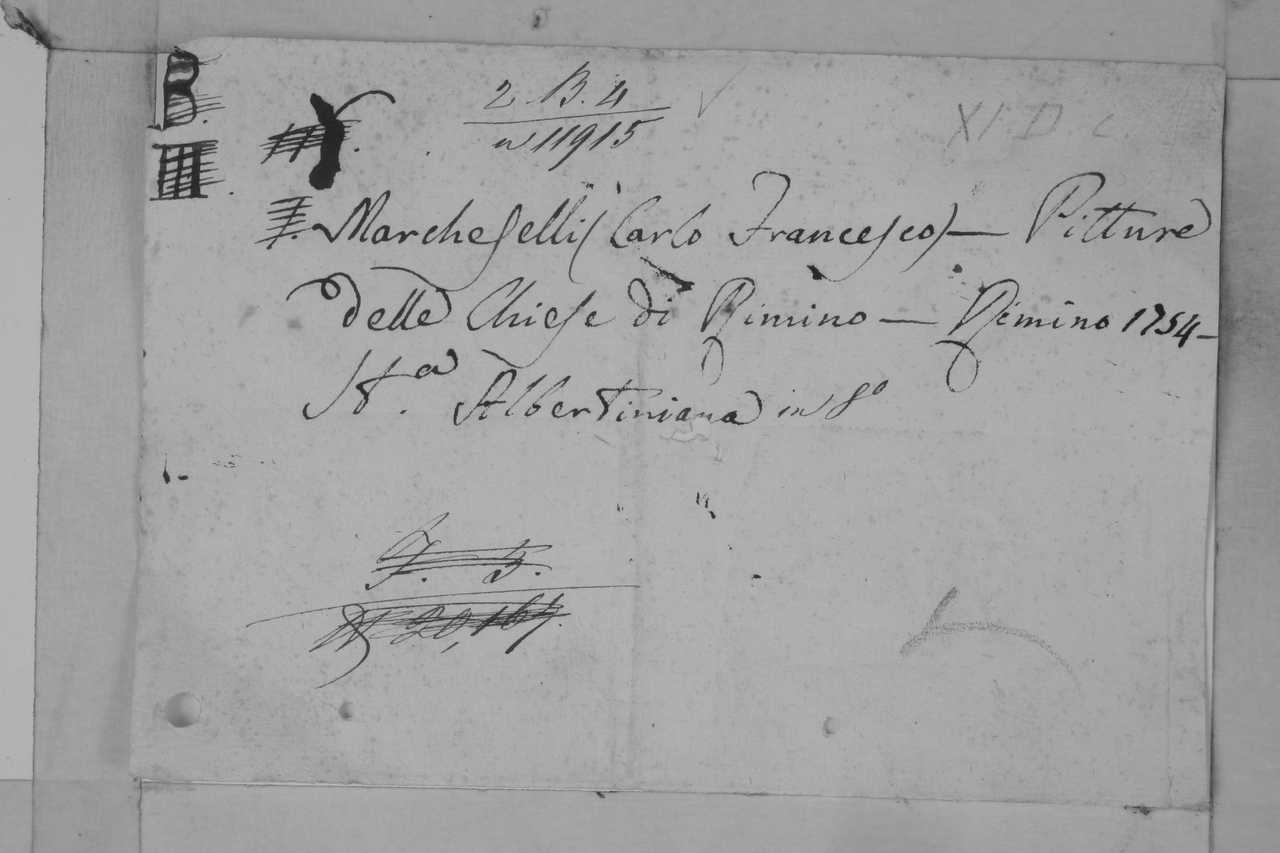 B.
III.
2 B. 4
n 11915
XI D c
Marcheselli (Carlo Francesco) — Pitture
delle Chiese di Rimino — Rimino 1754 —
St.a Albertiniana in 8o
F. 5.
N 20,167.